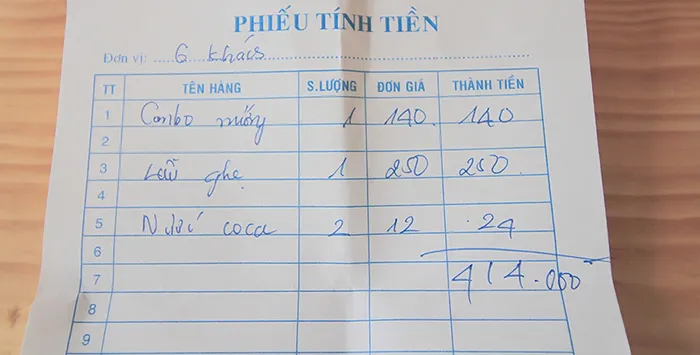 PHIẾU TÍNH TIỀN
Đơn vị: 6 khách
TT TÊN HÀNG S.LƯỢNG ĐƠN GIÁ THÀNH TIỀN
1 Combo nướng 1 140 140
2
3 Lẩu ghẹ 1 250 250
4
5 Nước coca 2 12 24
6
7 414.000
8
9